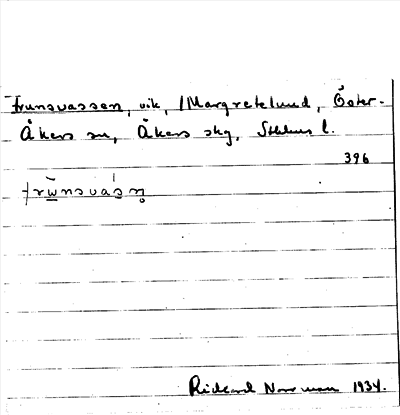 Trunsvassen, vik, /Margretelund, Öster-
Åkers sn, Åkers skg, Sthlms l.
396
Rickard Norrman 1934.